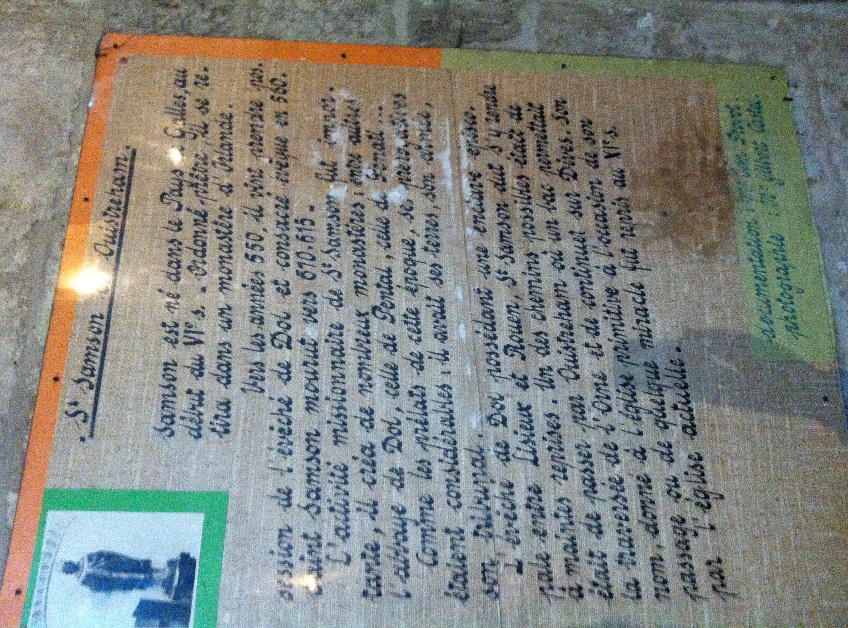 St Samson Ouistreham.
Samson est né dans le Pays de Galles, au
début du VIe s. - Ordonné prêtre, il se re-
tira dans un monastère d'Irlande.
Vers les années 550, il vint prendre pos-
session de l'évêché de Dol et consacré évêque en 560.
Saint Samson mourut vers 610-615.
L'activité missionnaire de St Samson fut
tante, il créa de nombreux monastères : entre autres
l'abbaye de Dol, celle de Pental, celle de
Comme les prélats de cette époque, ses prérogatives
étaient considérables : il avait ses terres, son
son tribunal.
L'évêché de Dol possédant une enclave
tale entre Lisieux et Rouen, St Samson dut s'y rendre
à maintes reprises. Un des chemins possibles était de
était de passer par Ouistreham où un bac permettait
la traversée de l'Orne et de continuer sur Dives. Son
nom, donné à l'église primitive à l'occasion de son
passage ou de quelque miracle fut repris au XIe s.
par l'église actuelle.
documentation :
photographie : Mr Gilbert